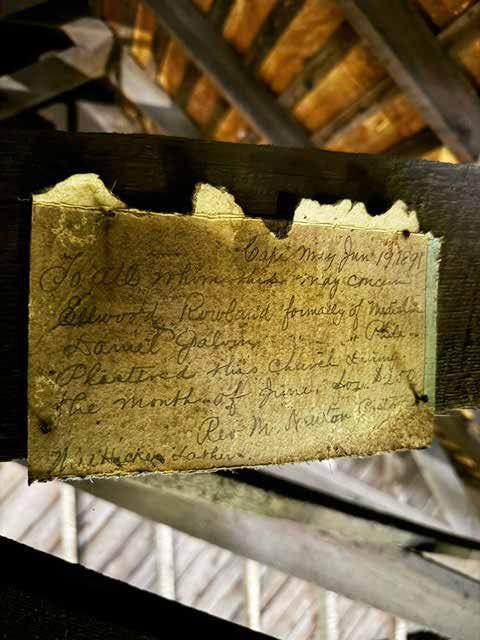 Cape May Jun 19 1891
To all whom this may concern
Ellwood Rowland formally of
Daniel Galvin " " " Phila
Plastered this Church During
the month of June. for $2.50
Rev M. Newton Pastor
Lather